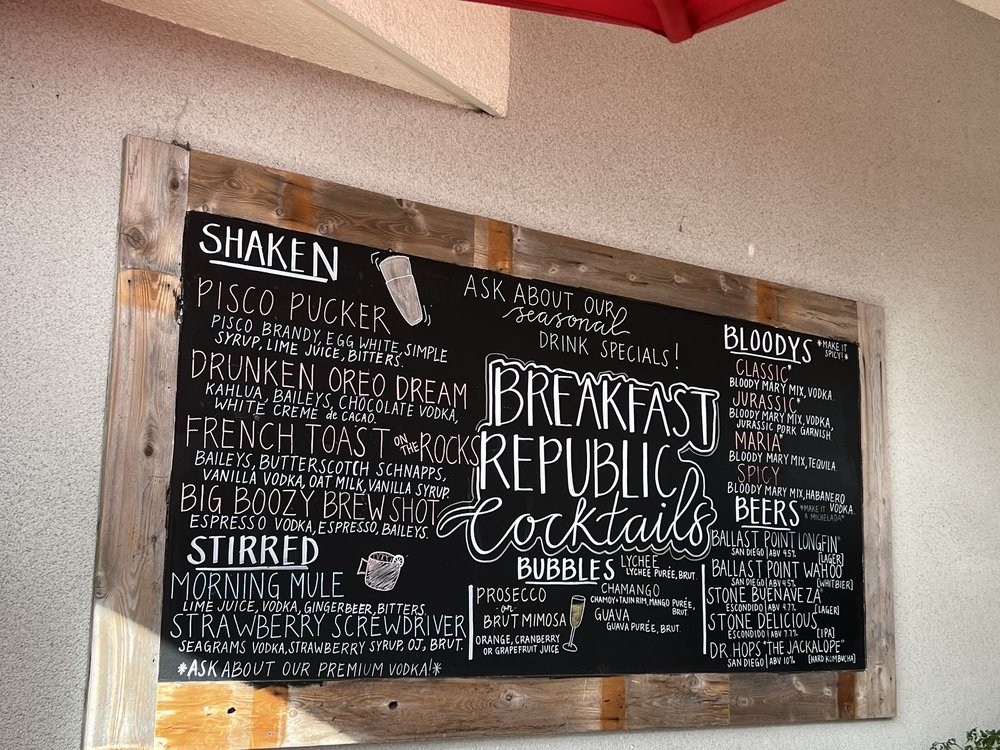 SHAKEN
PISCO PUCKER
PISCO, BRANDY, EGG WHITE, SIMPLE
SYRUP, LIME JUICE, BITTERS.
DRUNKEN OREO DREAM
KAHLUA, BAILEYS, CHOCOLATE VODKA,
WHITE CREME de CACAO.
FRENCH TOAST ON THE ROCKS
BAILEYS, BUTTERSCOTCH SCHNAPPS,
VANILLA VODKA, OAT MILK, VANILLA SYRUP.
BIG BOOZY BREW SHOT
ESPRESSO VODKA, ESPRESSO, BAILEYS.
STIRRED
MORNING MULE
LIME JUICE, VODKA, GINGERBEER, BITTERS.
STRAWBERRY SCREWDRIVER
SEAGRAMS VODKA, STRAWBERRY SYRUP, OJ, BRUT.
*ASK ABOUT OUR PREMIUM VODKA!*
ASK ABOUT OUR
seasonal
DRINK SPECIALS!
BREAKFAST
REPUBLIC
Cocktails
BUBBLES
PROSECCO
-or-
BRUT MIMOSA
ORANGE, CRANBERRY
OR GRAPEFRUIT JUICE
LYCHEE
LYCHEE PURÉE, BRUT.
CHAMANGO
CHAMOY & TAJIN RIM, MANGO PURÉE,
BRUT
GUAVA
GUAVA PURÉE, BRUT.
BLOODYS *MAKE IT
SPICY!*
CLASSIC*
BLOODY MARY MIX, VODKA.
JURASSIC*
BLOODY MARY MIX, VODKA,
JURASSIC PORK GARNISH.
MARIA*
BLOODY MARY MIX, TEQUILA.
SPICY
BLOODY MARY MIX, HABANERO
VODKA.
BEERS *MAKE IT
A MICHELADA*
BALLAST POINT LONGFIN
SAN DIEGO | ABV 4.5% [LAGER]
BALLAST POINT WAHOO
SAN DIEGO | ABV 4.5% [WHITBIER]
STONE BUENAVEZA
ESCONDIDO | ABV 4.7% [LAGER]
STONE DELICIOUS
ESCONDIDO | ABV 7.7% [IPA]
DR. HOPS "THE JACKALOPE"
SAN DIEGO | ABV 10% [HARD KOMBUCHA]